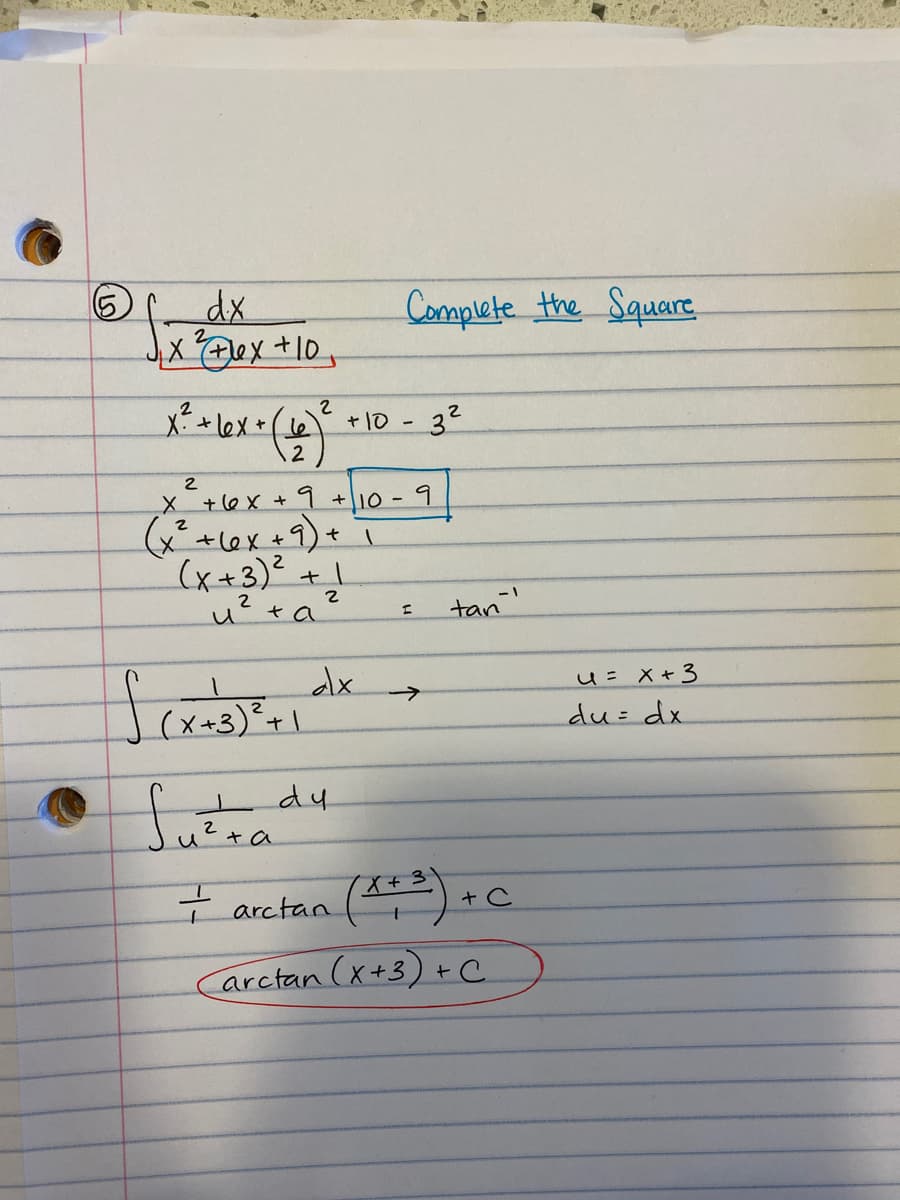 ⑤ ∫ dx / (x² + 6x + 10)   Complete the Square
x² + 6x + (6/2)² + 10 - 3²
x² + 6x + 9 + 10 - 9
(x² + 6x + 9) + 1
(x + 3)² + 1
u² + a² = tan⁻¹
∫ 1/((x+3)² + 1) dx →   u = x + 3
du = dx
∫ 1/(u² + a) du
1/1 arctan ((x+3)/1) + C
arctan (x+3) + C